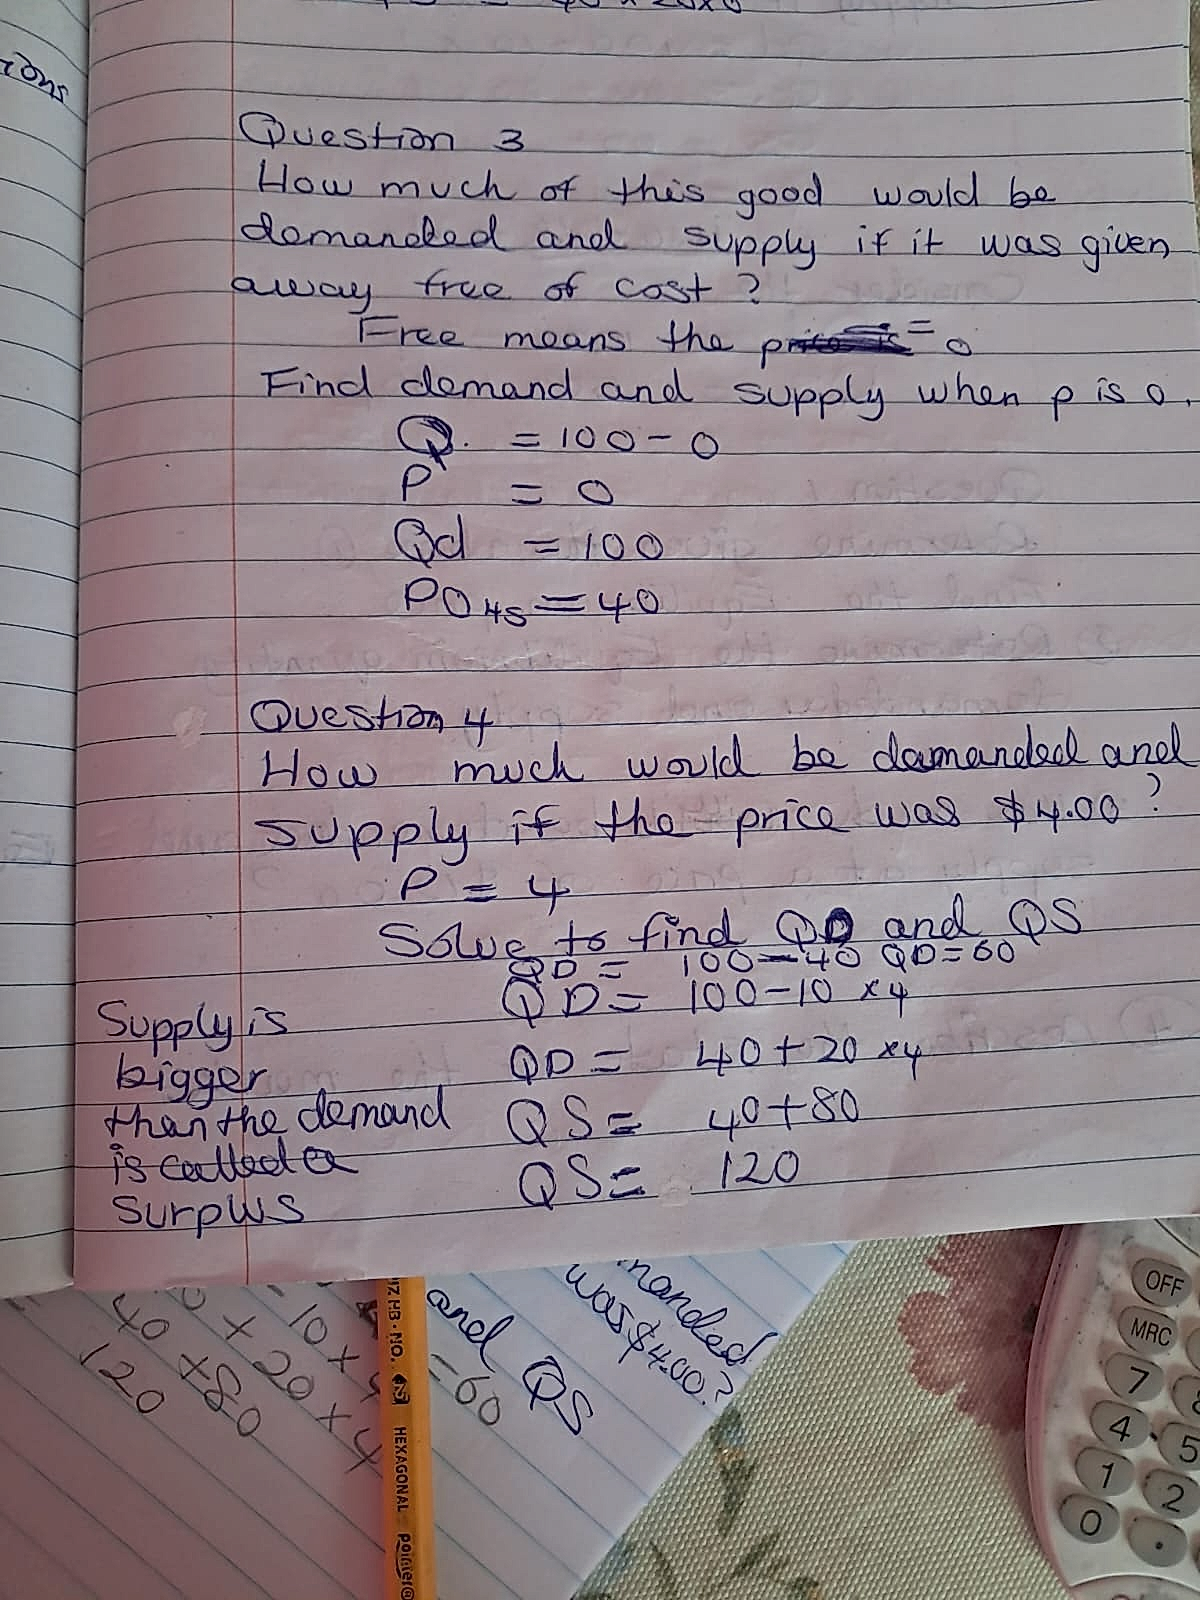 ions
Question 3
How much of this good would be
demanded and supply if it was given
away free of cost?
Free means the = 0
Find demand and supply when p is 0.
Q. = 100 - 0
P = 0
Qd = 100
PO4s = 40
Question 4
How much would be demanded and
supply if the price was $4.00?
P = 4
Solve to find QD and QS
QD = 100 - 40 QD = 60
QD = 100 - 10 x 4
QD = 40 + 20 x 4
QS = 40 + 80
QS = 120
Supply is
bigger
than the demand
is called a
Surplus
manded
was $4.00?
and QS
= 60
- 10 x 4
x 20 x 4
40 x 80
120
HB · NO. 2
HEXAGONAL
pointer
OFF
MRC
7
4 5
1 2
0 .